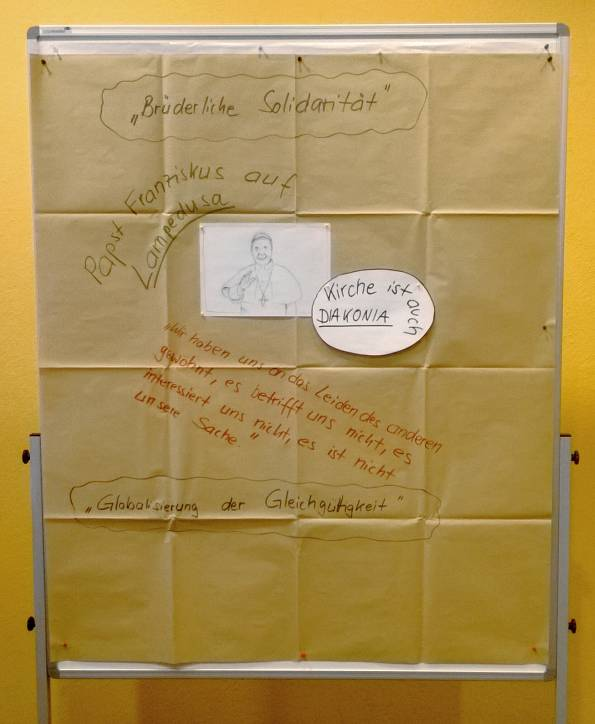 „Brüderliche Solidarität"
Papst Franziskus auf
Lampedusa
Kirche ist auch
DIAKONIA
„Wir haben uns an das Leiden des anderen
gewöhnt, es betrifft uns nicht, es
interessiert uns nicht, es ist nicht
unsere Sache"
„Globalisierung der Gleichgültigkeit"